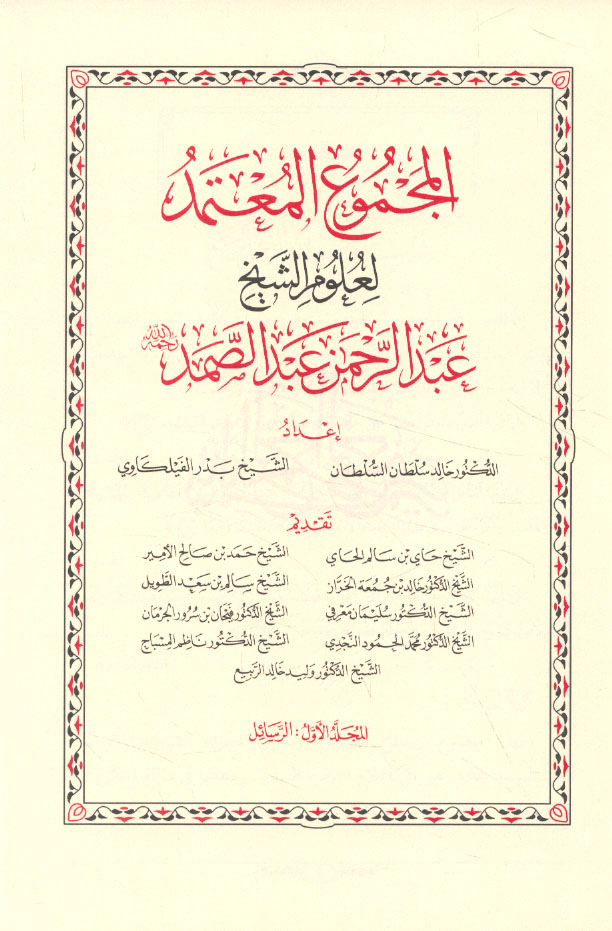 المجموع المعتمد
لعلوم الشيخ
عبد الرحمن عبد الصمد رحمه الله
إعداد
الدكتور خالد سلطان السلطان الشيخ بدر الفيلكاوي
تقديم
الشيخ حاي بن سالم الحاي الشيخ حمد بن صالح الأمير
الشيخ الدكتور خالد بن جمعة الخراز الشيخ سالم بن سعد الطويل
الشيخ الدكتور سليمان معرفي الشيخ الدكتور فتحان بن سرور الجرمان
الشيخ الدكتور محمد الحمود النجدي الشيخ الدكتور ناظم المسباح
الشيخ الدكتور وليد خالد الربيع
المجلد الأول : الرسائل